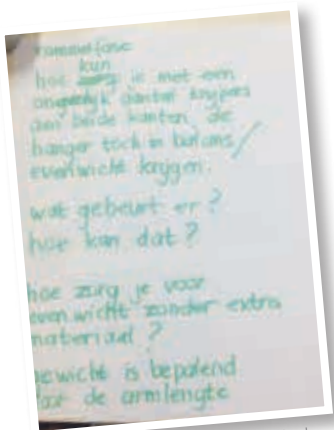 rommelfase
kun
hoe je met een
ongelijk aantal knijpers
aan beide kanten de
hanger toch in balans/
evenwicht krijgen.
wat gebeurt er?
hoe kan dat?
hoe zorg je voor
evenwicht zonder extra
materiaal?
gewicht is bepalend
voor de armlengte